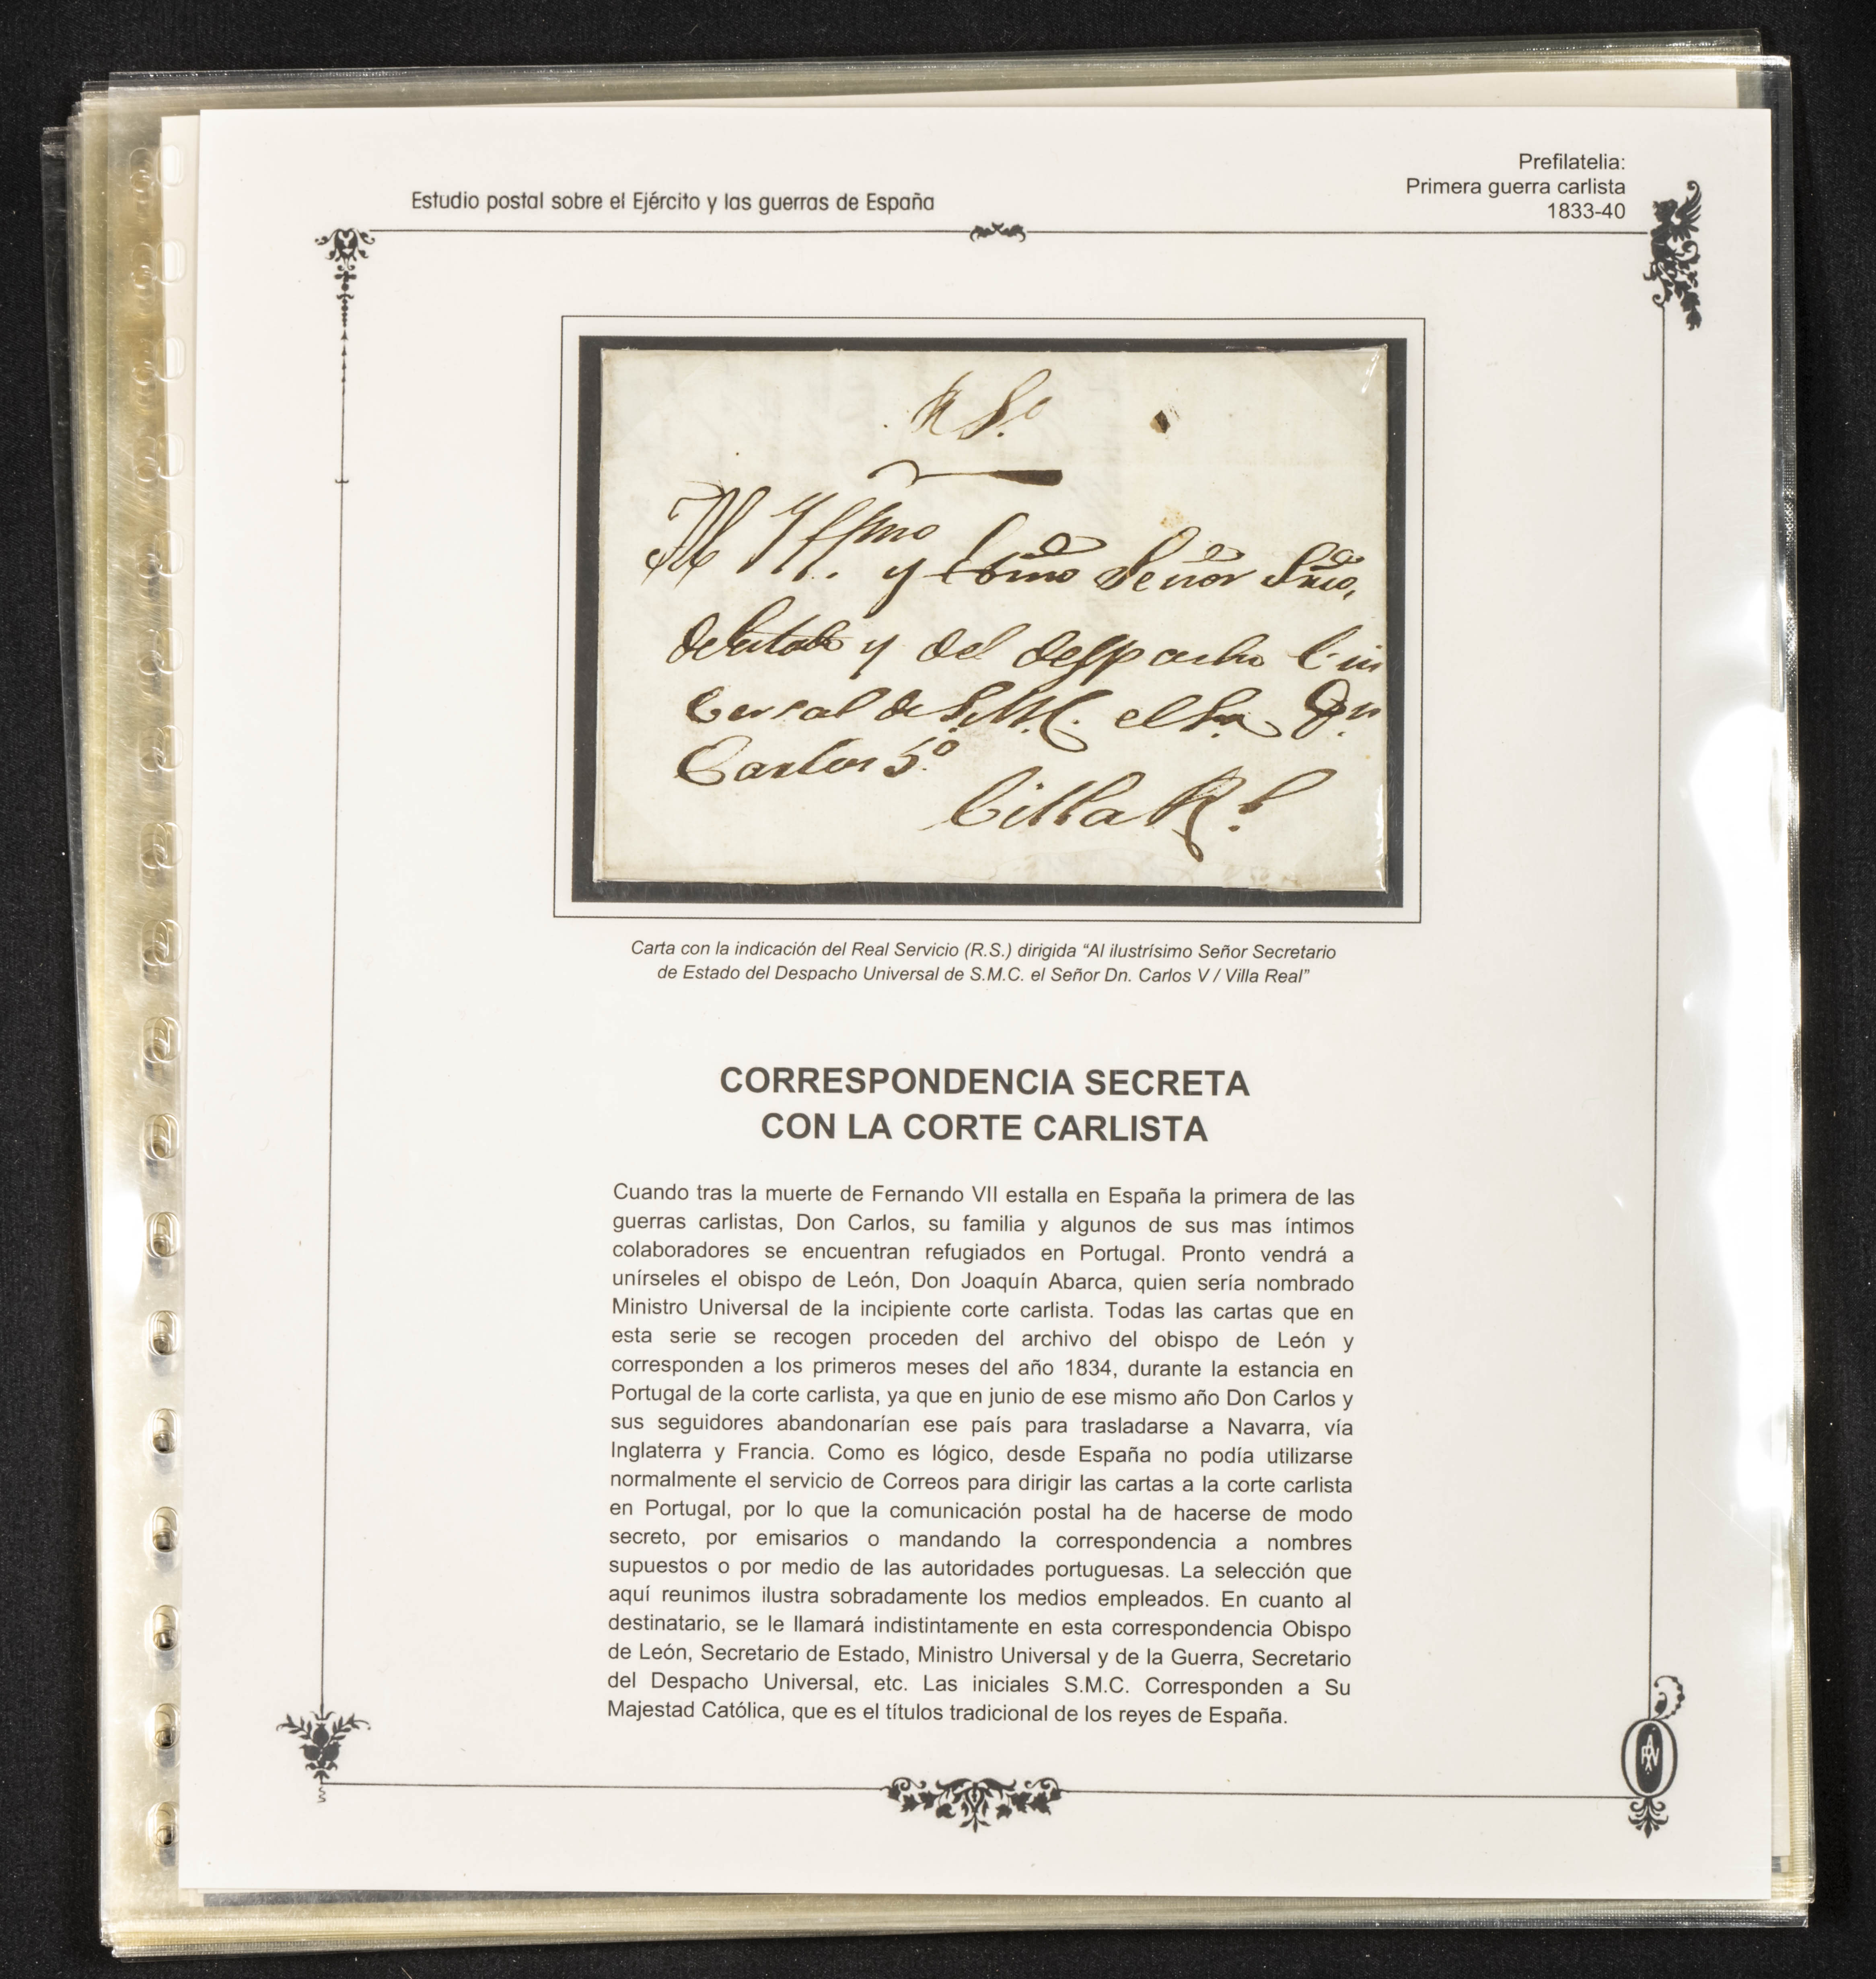 Prefilatelia:
Primera guerra carlista
1833-40
Estudio postal sobre el Ejército y las guerras de España
R S.º
Al Yllmo
y Exmo Señor Srio,
de Estado y del despacho Uni
versal de S.M.C. el Sr. Dn.
Carlos 5º
Villa Rl.
Carta con la indicación del Real Servicio (R.S.) dirigida “Al ilustrísimo Señor Secretario
de Estado del Despacho Universal de S.M.C. el Señor Dn. Carlos V / Villa Real”
CORRESPONDENCIA SECRETA
CON LA CORTE CARLISTA
Cuando tras la muerte de Fernando VII estalla en España la primera de las
guerras carlistas, Don Carlos, su familia y algunos de sus mas íntimos
colaboradores se encuentran refugiados en Portugal. Pronto vendrá a
unírseles el obispo de León, Don Joaquín Abarca, quien sería nombrado
Ministro Universal de la incipiente corte carlista. Todas las cartas que en
esta serie se recogen proceden del archivo del obispo de León y
corresponden a los primeros meses del año 1834, durante la estancia en
Portugal de la corte carlista, ya que en junio de ese mismo año Don Carlos y
sus seguidores abandonarían ese país para trasladarse a Navarra, vía
Inglaterra y Francia. Como es lógico, desde España no podía utilizarse
normalmente el servicio de Correos para dirigir las cartas a la corte carlista
en Portugal, por lo que la comunicación postal ha de hacerse de modo
secreto, por emisarios o mandando la correspondencia a nombres
supuestos o por medio de las autoridades portuguesas. La selección que
aquí reunimos ilustra sobradamente los medios empleados. En cuanto al
destinatario, se le llamará indistintamente en esta correspondencia Obispo
de León, Secretario de Estado, Ministro Universal y de la Guerra, Secretario
del Despacho Universal, etc. Las iniciales S.M.C. Corresponden a Su
Majestad Católica, que es el títulos tradicional de los reyes de España.